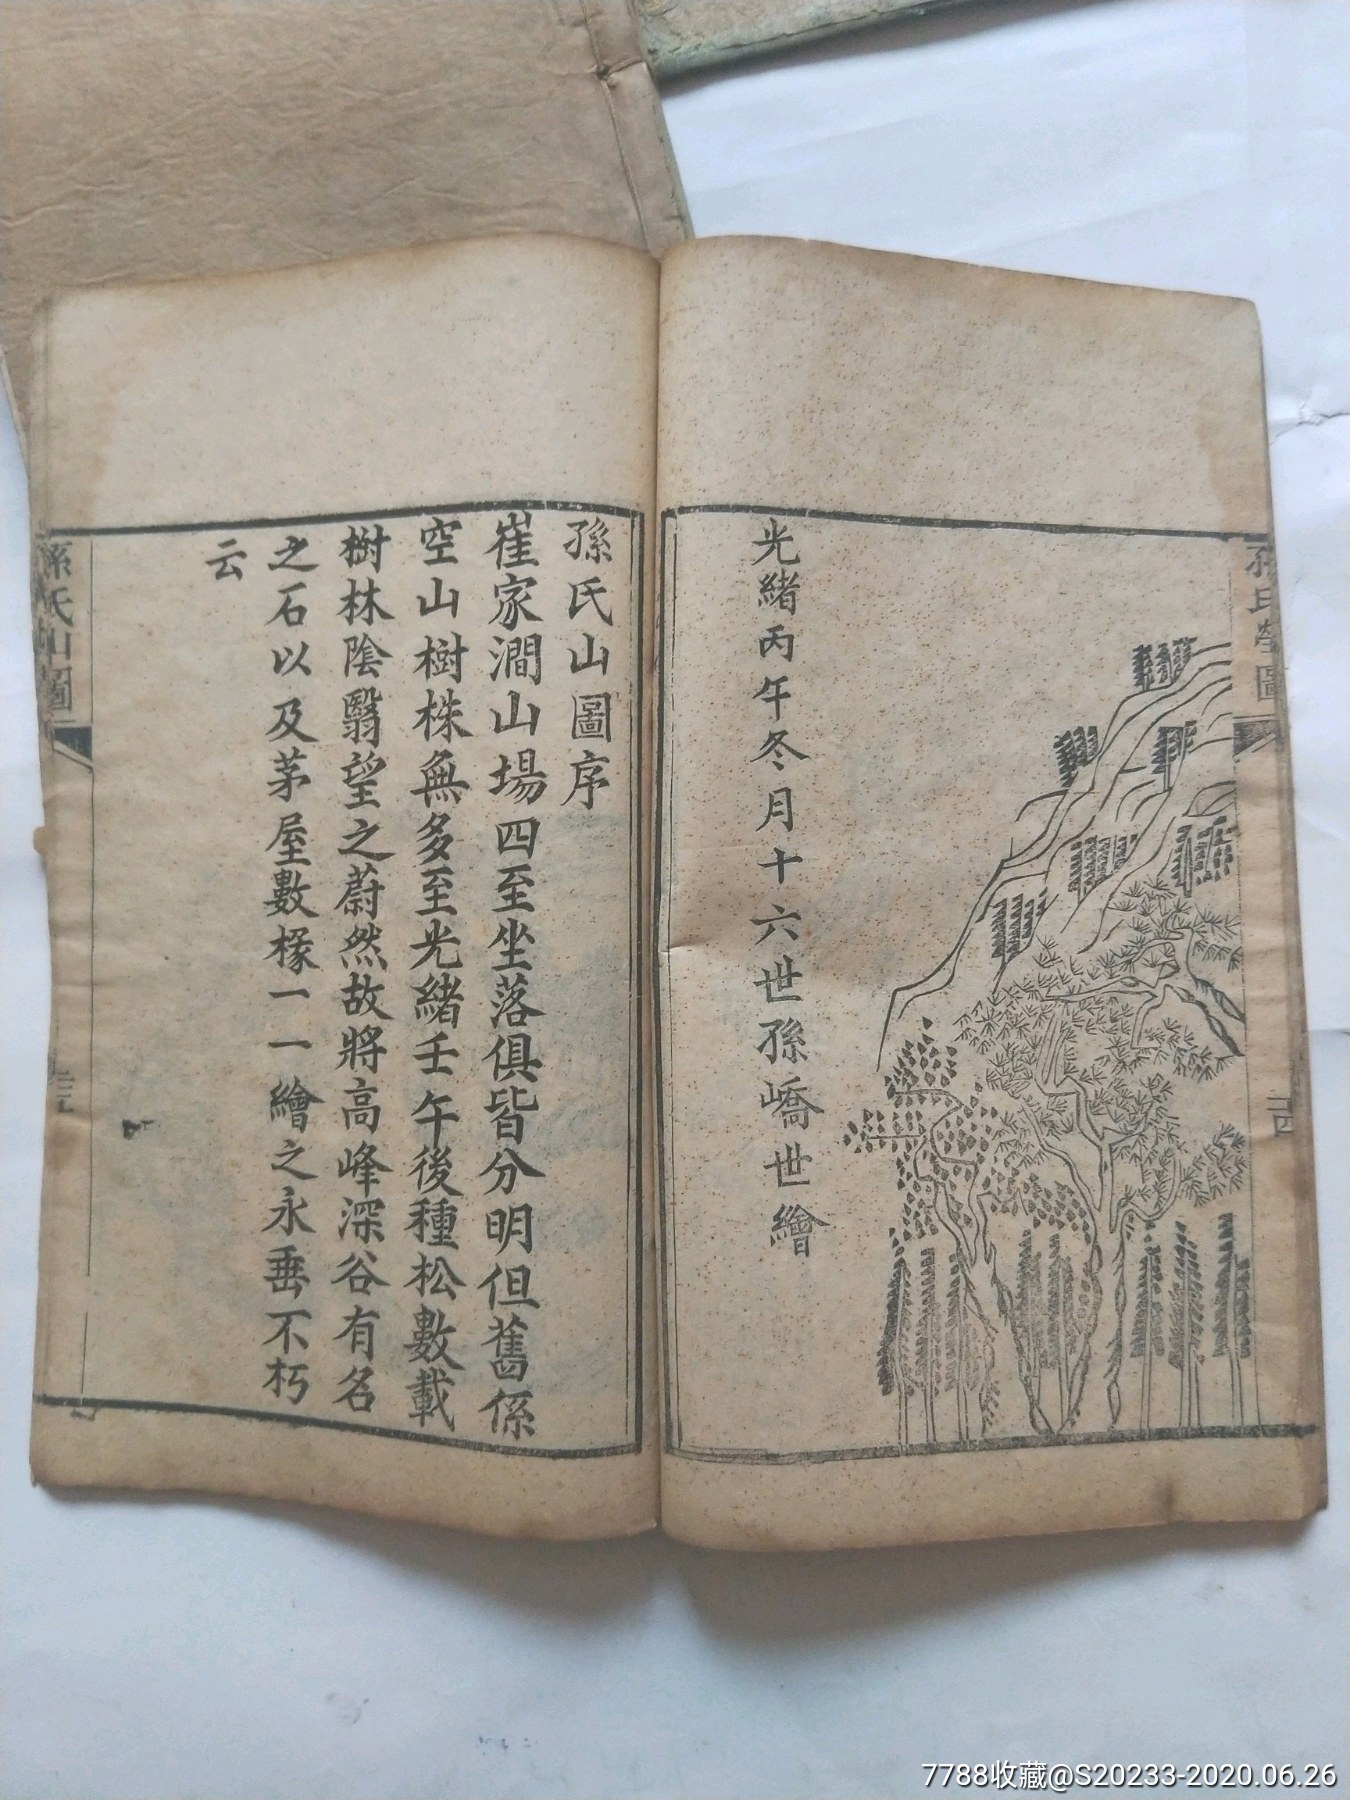 孫氏塋圖
二四
光緒丙午冬月十六世孫嶠世繪
孫氏山圖序
崔家澗山場四至坐落俱皆分明但舊係
空山樹株無多至光緒壬午後種松數載
樹林陰翳望之蔚然故將高峰深谷有名
之石以及茅屋數椽一一繪之永垂不朽
云
孫氏山圖
7788收藏@S20233-2020.06.26